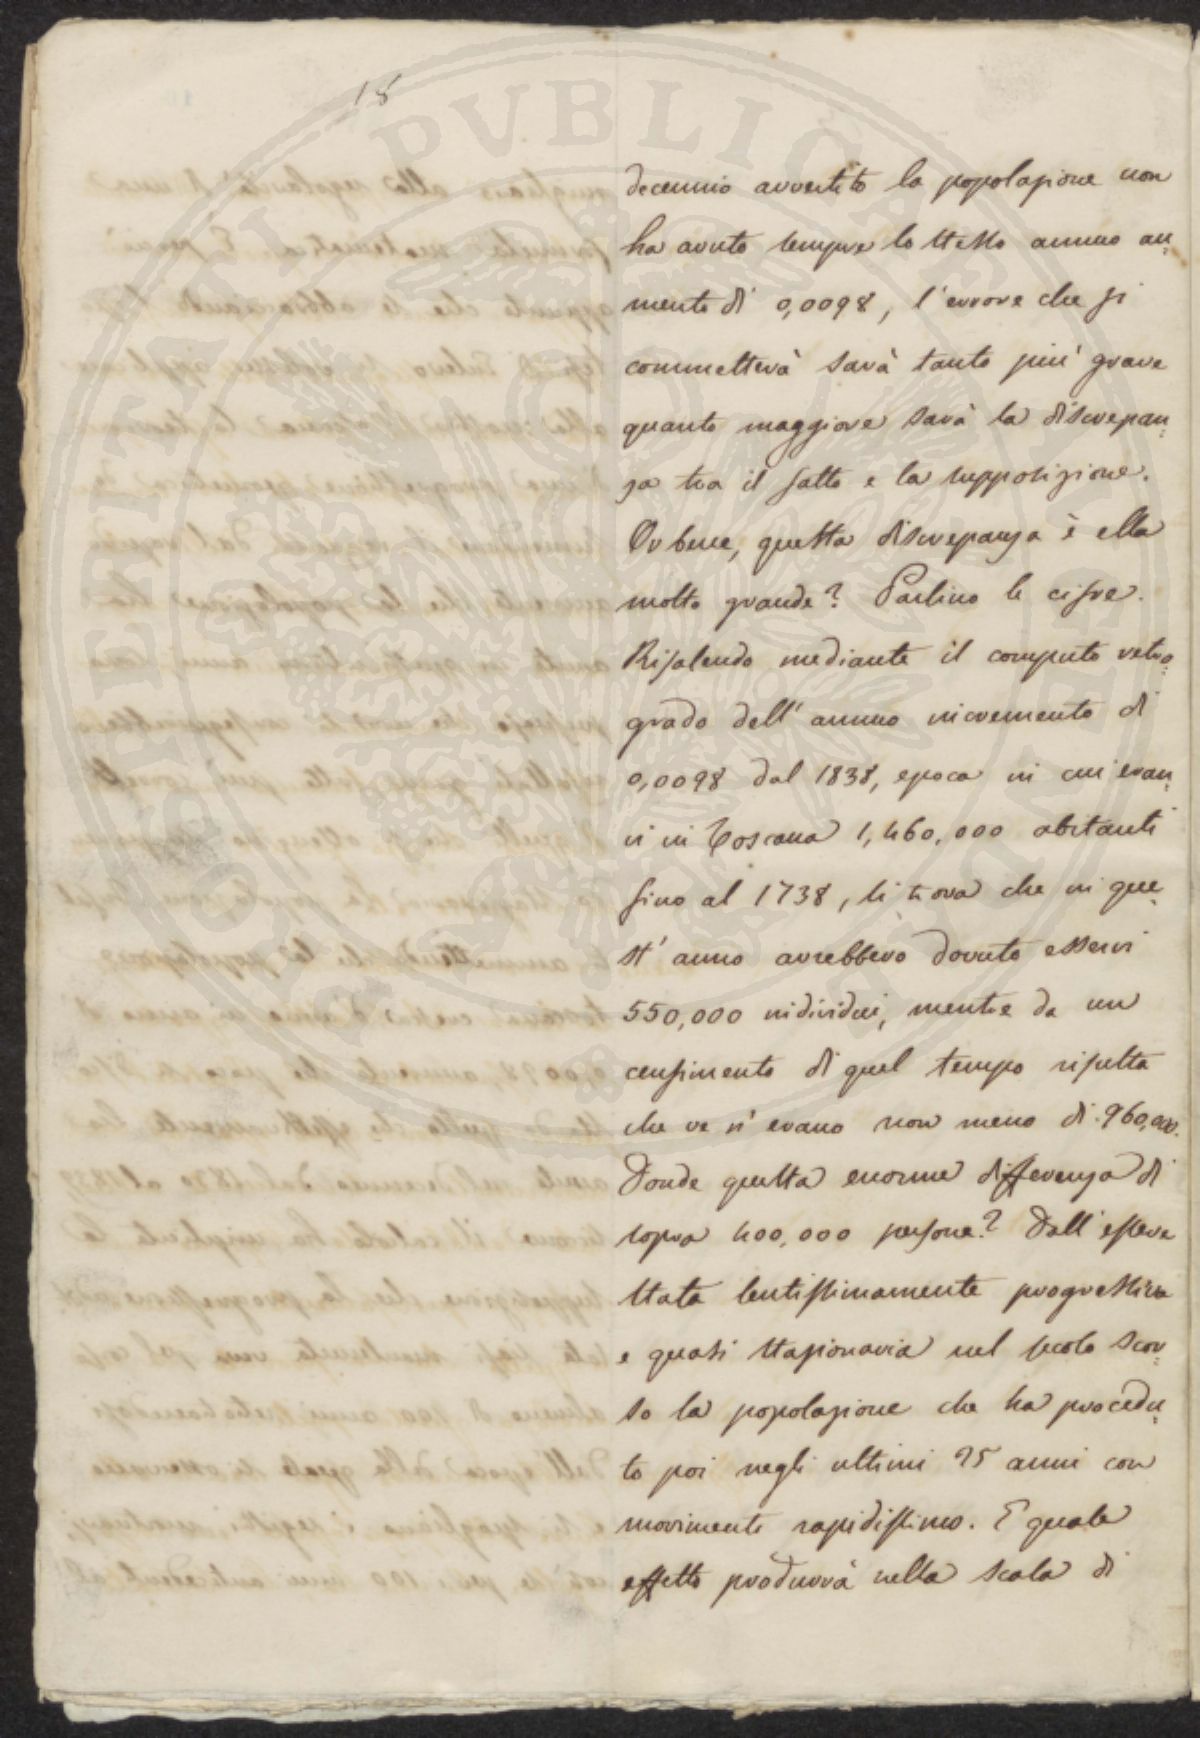 18
decennio avvertito la popolazione non
ha avuto sempre lo stesso annuo au=
mento di 0,0098, l'errore che si
commetterà sarà tanto più grave
quanto maggiore sarà la discrepan=
za tra il fatto e la supposizione.
Or bene, questa discrepanza è ella
molto grande? Parlino le cifre.
Risalendo mediante il computo retro=
grado dell'annuo incremento di
0,0098 dal 1838, epoca in cui eran=
vi in Toscana 1,460,000 abitanti
sino al 1738, si trova che in que=
st'anno avrebbero dovuto esservi
550,000 individui, mentre da un
censimento di quel tempo risulta
che ve n'erano non meno di 960,000.
Donde questa enorme differenza di
sopra 400,000 persone? Dall'essere
stata lentissimamente progressiva
e quasi stazionaria nel secolo scor=
so la popolazione che ha procedu=
to poi negli ultimi 25 anni con
movimento rapidissimo. E quale
effetto produrrà nella scala di